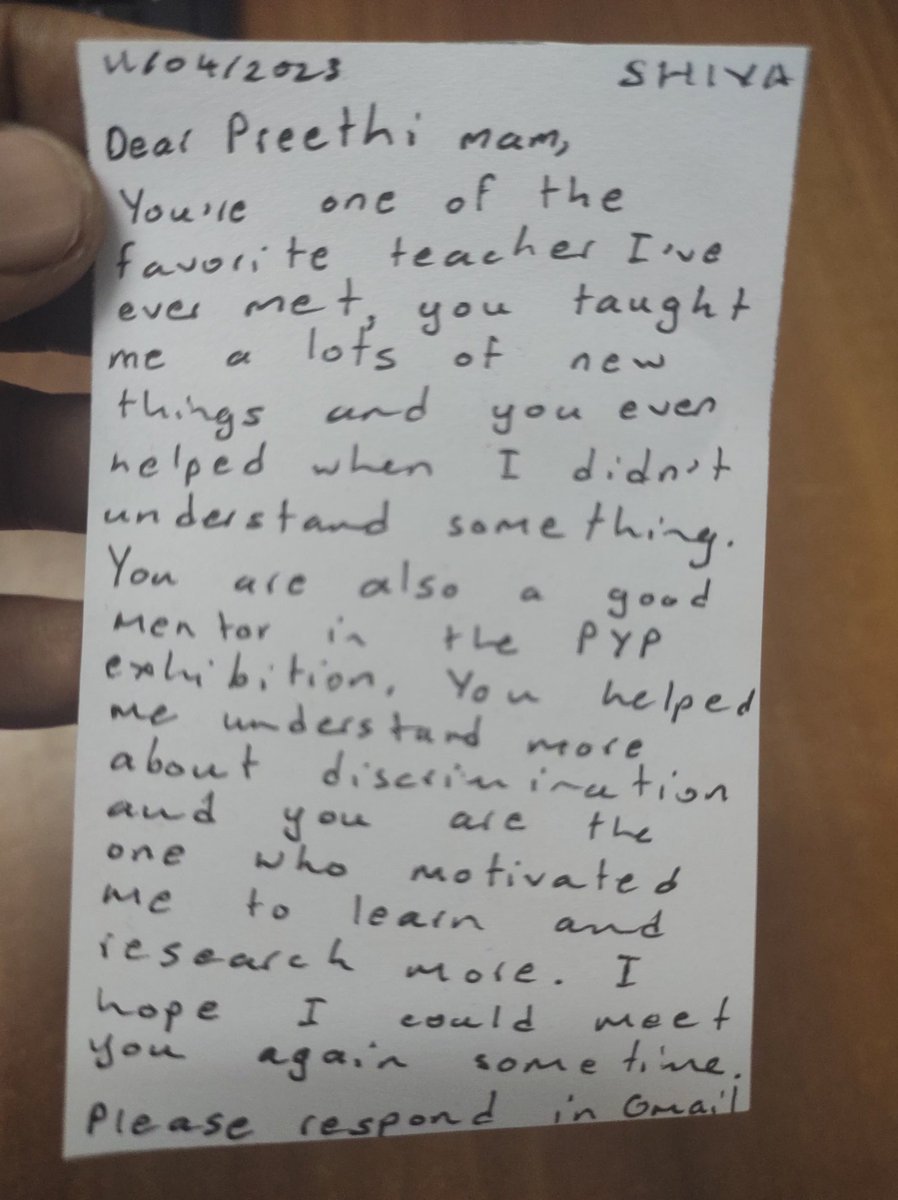 11/04/2023 SHIVA
Dear Preethi mam,
You're one of the
favorite teacher I've
ever met, you taught
me a lots of new
things and you even
helped when I didn't
understand something.
You are also a good
mentor in the PYP
exhibition. You helped
me understand more
about discrimination
and you are the
one who motivated
me to learn and
research more. I
hope I could meet
you again sometime.
Please respond in Gmail